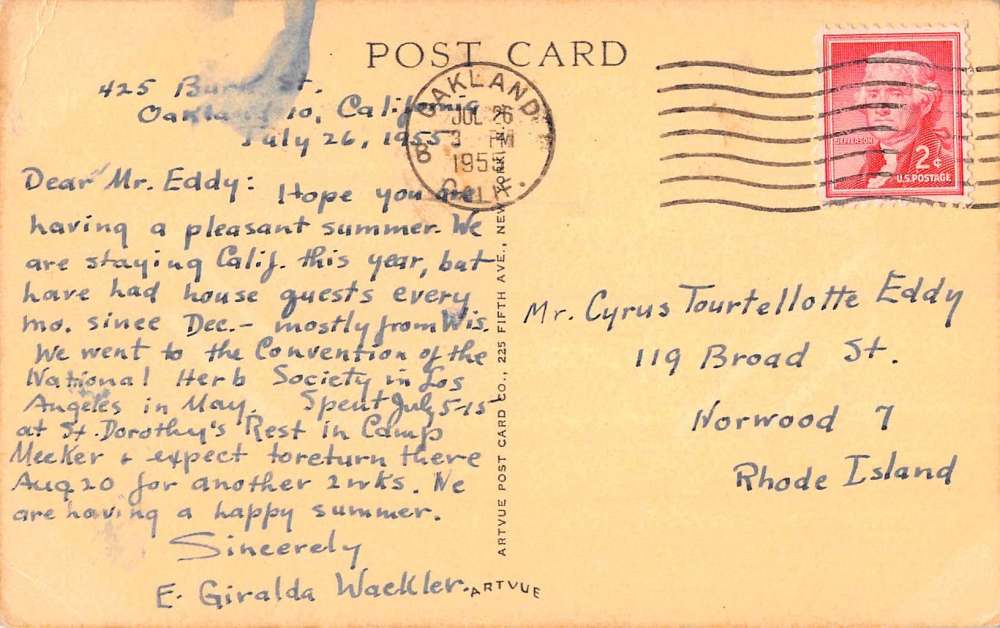 POST CARD
425 St.
Oakland 10, California
July 26, 1955
Dear Mr. Eddy: Hope you are
having a pleasant summer. We
are staying Calif. this year, but
have had house guests every
mo. since Dec. - mostly from Wis.
We went to the Convention of the
National Herb Society in Los
Angeles in May. Spent July 5-15
at St. Dorothy's Rest in Camp
Meeker & expect to return there
Aug 20 for another 2 wks. We
are having a happy summer.
Sincerely
E. Giralda Waekler.
OAKLAND
JUL 26
3 PM
1955
CALIF.
JEFFERSON
2¢
U.S. POSTAGE
Mr. Cyrus Tourtellotte Eddy
119 Broad St.
Norwood 7
Rhode Island
ARTVUE POST CARD CO., 225 FIFTH AVE., NEW YORK, N.
ARTVUE